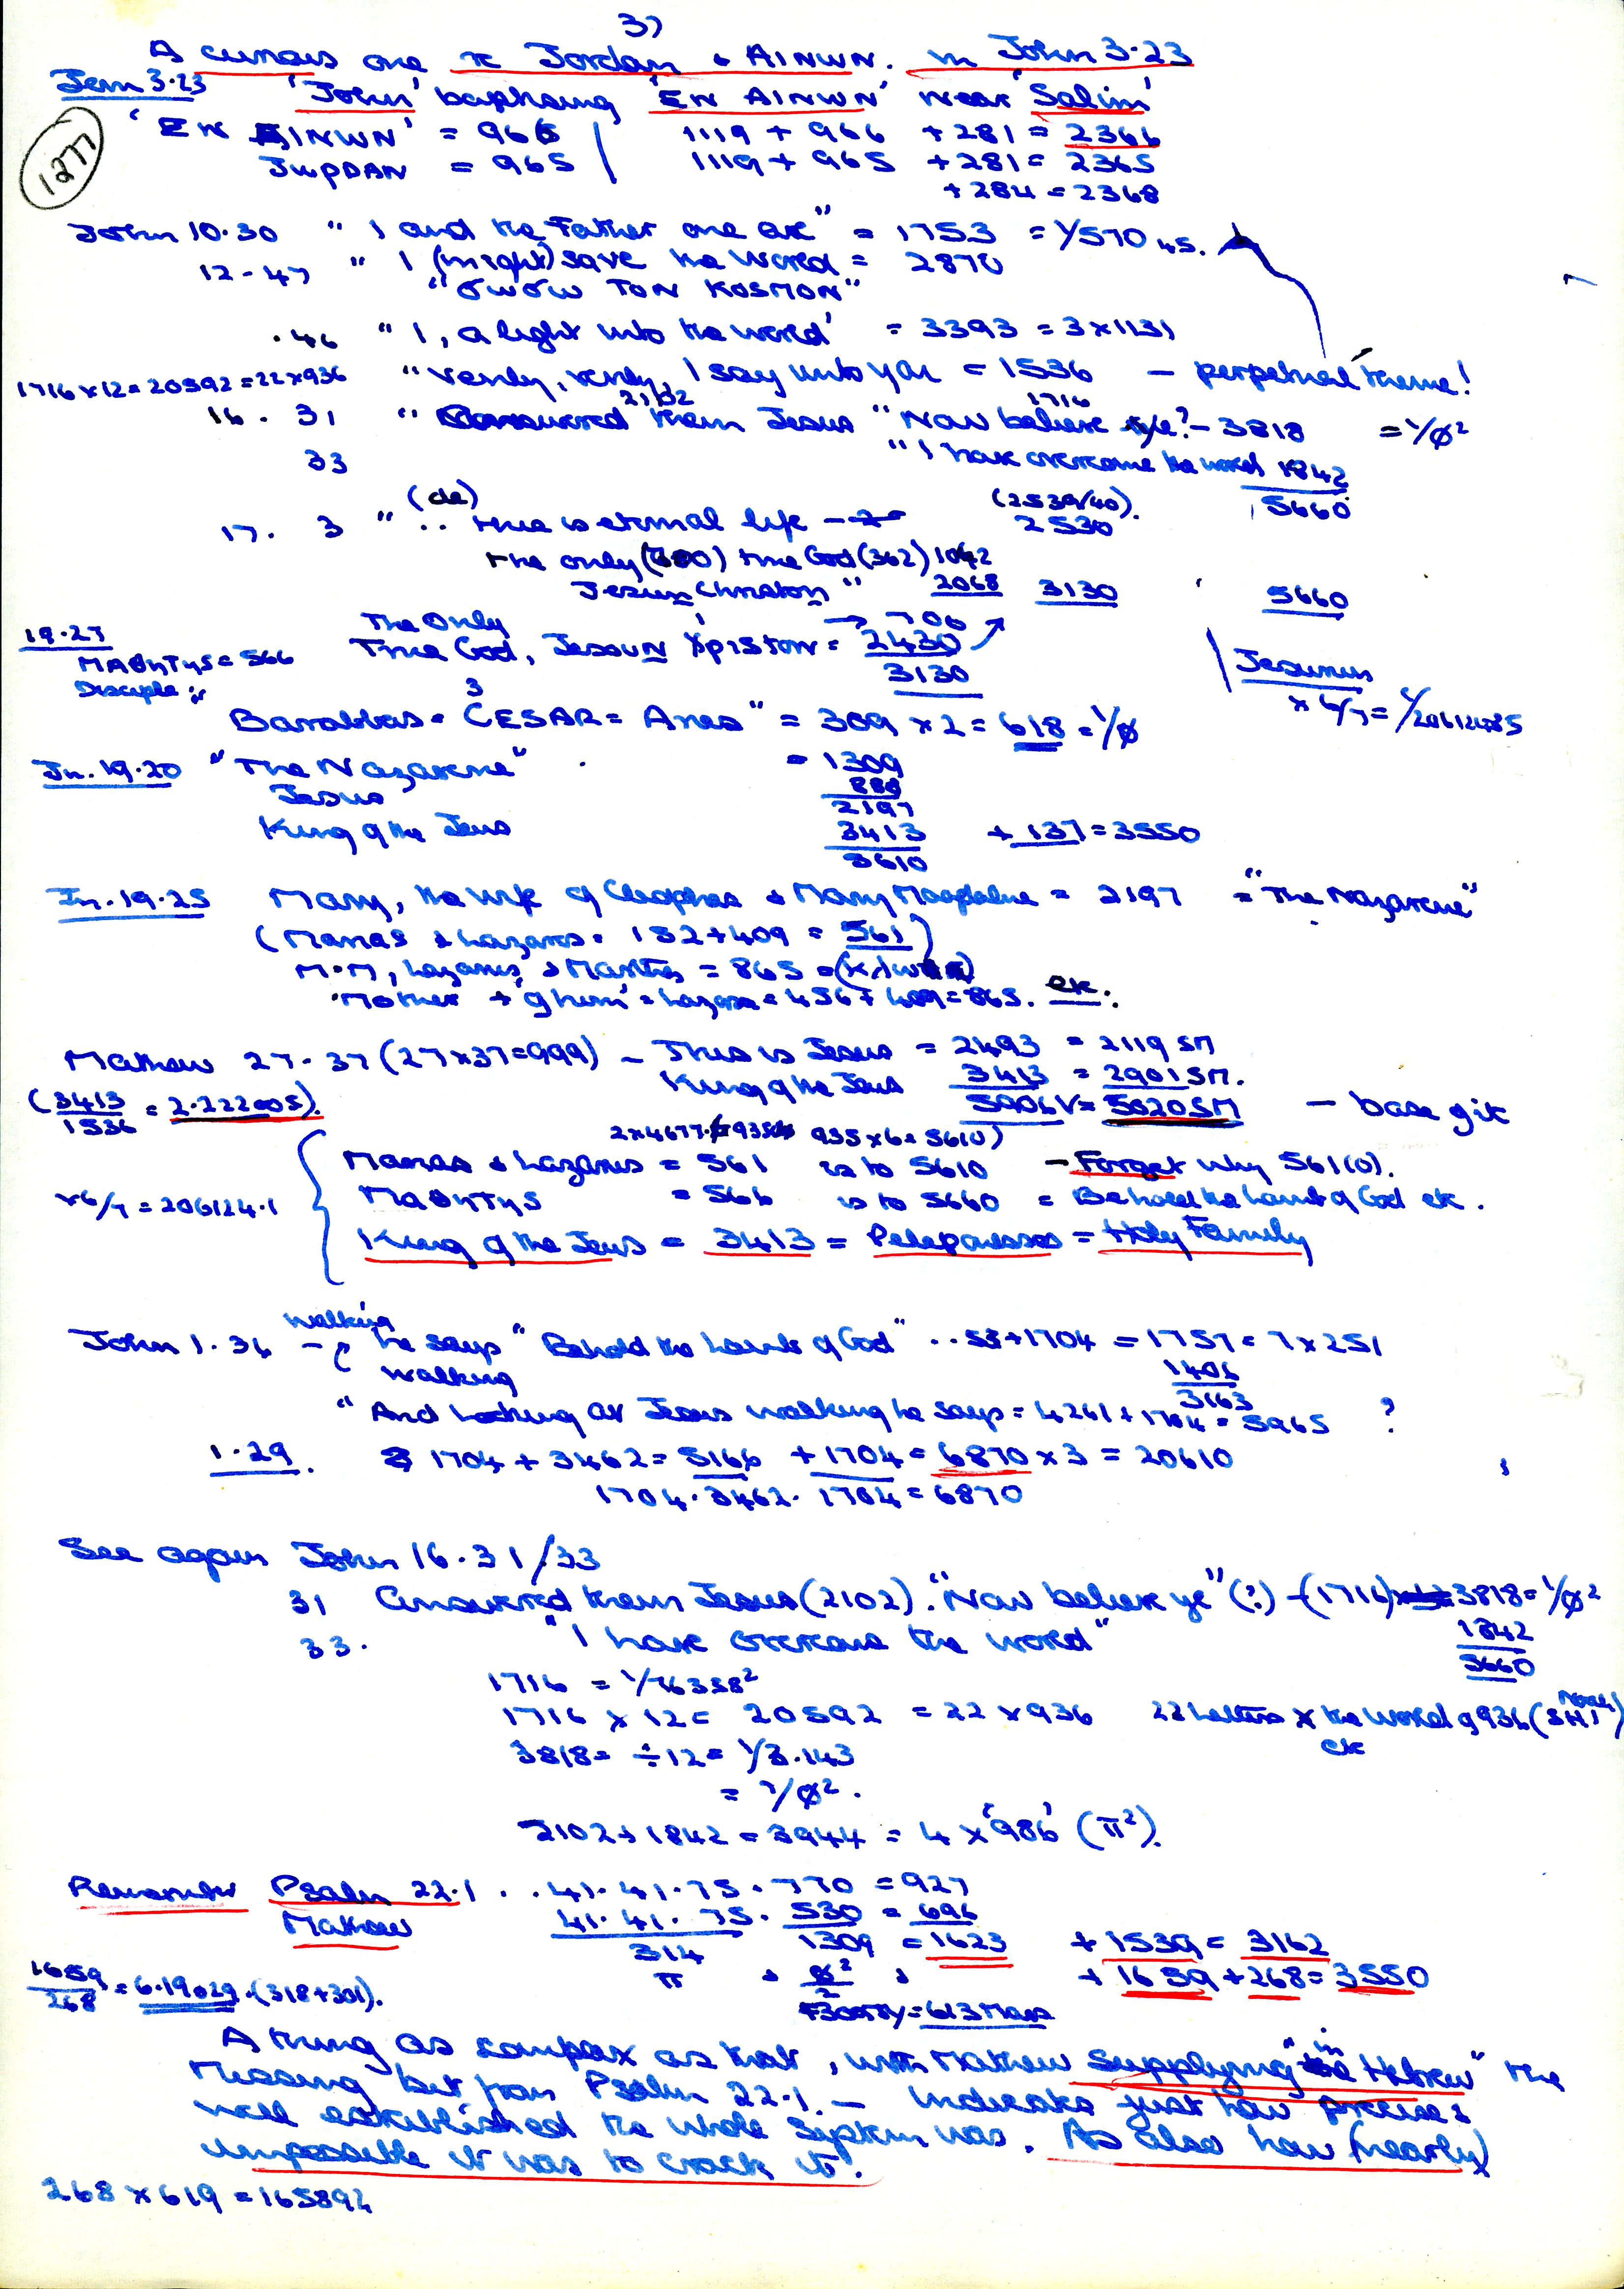 37
A curious one re Jordan & AINWN. in John 3.23
Jern 3.23 'John' baptising 'EN AINWN' near 'Salim'
1277
'EN AINWN' = 966 1119 + 966 + 281 = 2366
JWPDAN = 965 1119 + 965 + 281 = 2365
+ 284 = 2368
John 10.30 "I and the Father one are" = 1753 = 1/570 45.
12-47 "I (might) save the World = 2870
"σωσω TON KOSMON"
.46 "I, a light into the world' = 3393 = 3 x 1131
1716 x 12 = 20592 = 22 x 936 "Verily, verily, I say unto you = 1536 - perpetual theme!
2102 1716
16. 31 "Answered them Jesus "Now believe ye? - 3818 = 1/Ø²
33 "I have overcome the world 1842
5660
(de) (2539/40).
17. 3 ".. this is eternal life - 2530
the only (680) true God (362) 1042
Jesun Christon" 2068 3130 5660
The Only → 700
19.27 True God, Jesoun Xpiston = 2430
MAθHTHS = 566 3130
Disciple Jesunus
x 6/7 = 1/20612485
3
"Barabbas = CESAR = Ares" = 309 x 2 = 618 = 1/Ø
Jn. 19.20 "The Nazarene" = 1309
Jesus 888
2197
King of the Jews 3413 + 137 = 3550
5610
Jn. 19.25 Mary, the wife of Cleophas & Mary Magdalene = 2197 = "The Nazarene"
(Marias & Lazarus = 152 + 409 = 561)
M.M, Lazarus & Martha = 865
'Mother' + 'of him' = Lazarus = 456 + 409 = 865. etc.
Mathew 27.37 (27x37=999) - This is Jesus = 2493 = 2119 SM
King of the Jews 3413 = 2901 SM.
(3413/1536 = 2.222005). 5906 V = 5020 SM - base of it
935 x 6 = 5610)
Marias & Lazarus = 561 is to 5610 - Forget why 561(0).
x6/7 = 206124.1 MAθHTHS = 566 is to 5660 = Behold the Lamb of God etc.
King of the Jews = 3413 = Peloponessos = Holy Family
walking
John 1.36 - he says "Behold the Lamb of God" .. 53 + 1704 = 1757 = 7 x 251
walking 1406
3163
"And Looking at Jesus walking he says = 4261 + 1704 = 5965 ?
1.29. 1704 + 3462 = 5166 + 1704 = 6870 x 3 = 20610
1704. 3462. 1704 = 6870
See again John 16.31/33
31 Answered them Jesus (2102). "Now believe ye" (?) - (1716) 3818 = 1/Ø²
33. "I have overcome the world" 1842
5660
1716 = 1/76358²
1716 x 12 = 20592 = 22 x 936 22 Letters x the World of 936 (SHI Noah)
etc
3818 = ÷ 12 = 1/3.143
= 1/Ø².
2102 + 1842 = 3944 = 4 x '986' (π²).
Remember Psalm 22.1 .. 41. 41. 75. 770 = 927
Mathew 41. 41. 75. 530 = 696
314 1309 = 1623 + 1539 = 3162
π & Ø²/2 + 1659 + 268 = 3550
1659/268 = 6.19029. (318+301).
= 613 Mars
A thing as complex as that, with Mathew supplying "in Hebrew" the
missing bit from Psalm 22.1. - Indicates just how precise &
well established the whole system was. As also how (nearly)
impossible it was to crack it!
268 x 619 = 165892